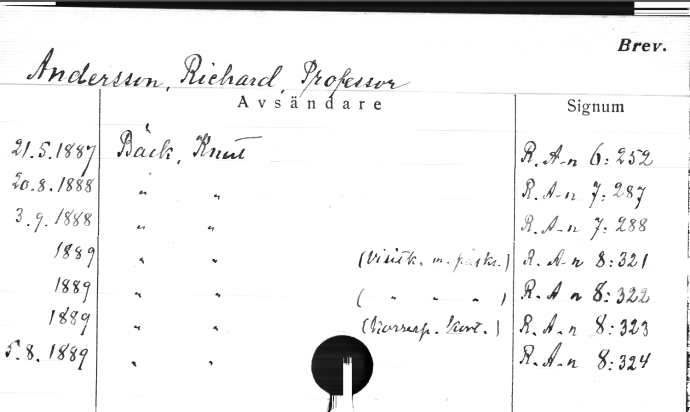 Brev.
Andersson, Richard, Professor
Avsändare Signum
21.5.1887 Bäck, Knut R. A-n 6:252
20.8.1888 " " R. A-n 7:287
3.9.1888 " " R. A-n 7:288
1889 " " (visitk. m. påskr.) R. A-n 8:321
1889 " " ( " " " ) R. A-n 8:322
1889 " " (Korresp. kort.) R. A-n 8:323
5.8.1889 " " R. A-n 8:324